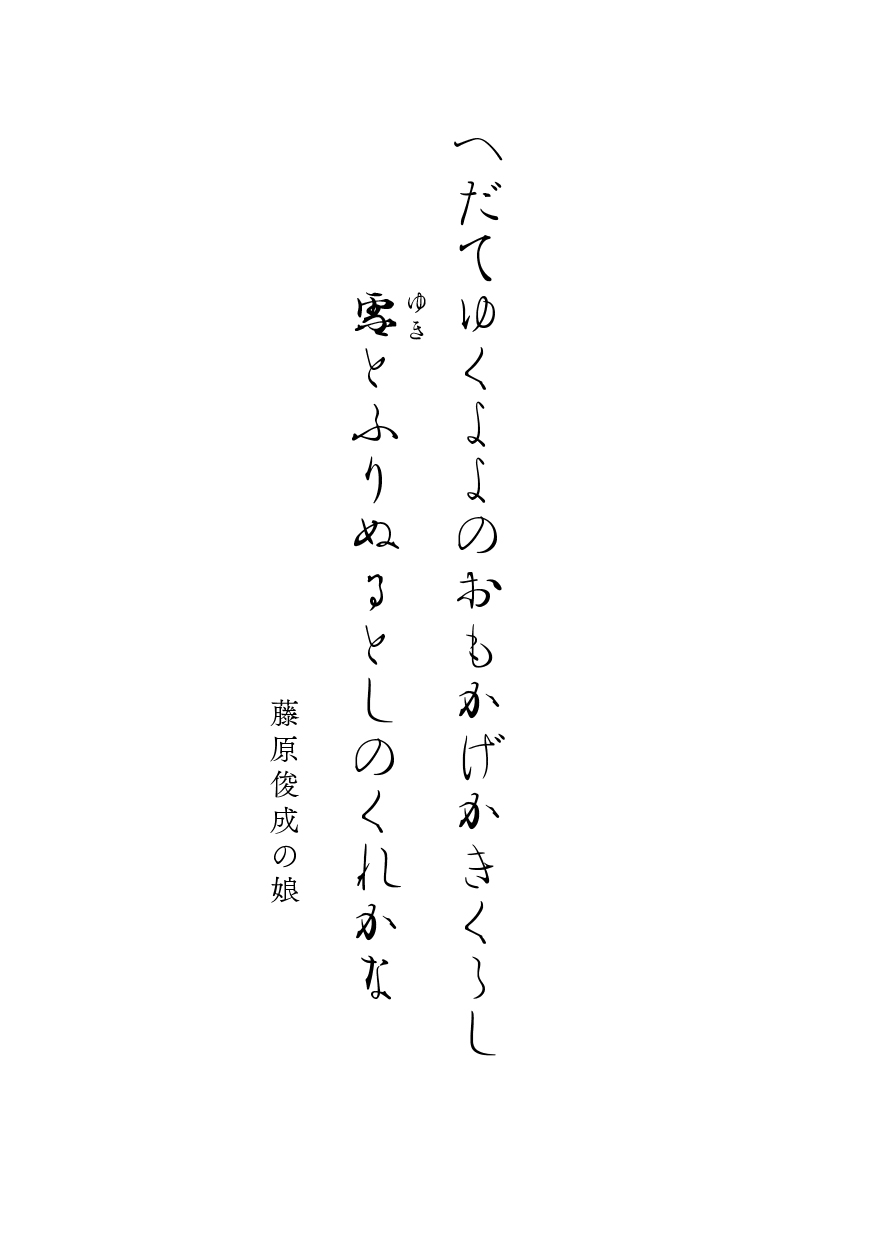 へだてゆくよよのおもかげかきくらし
雪とふりぬるとしのくれかな
ゆき
藤原俊成の娘